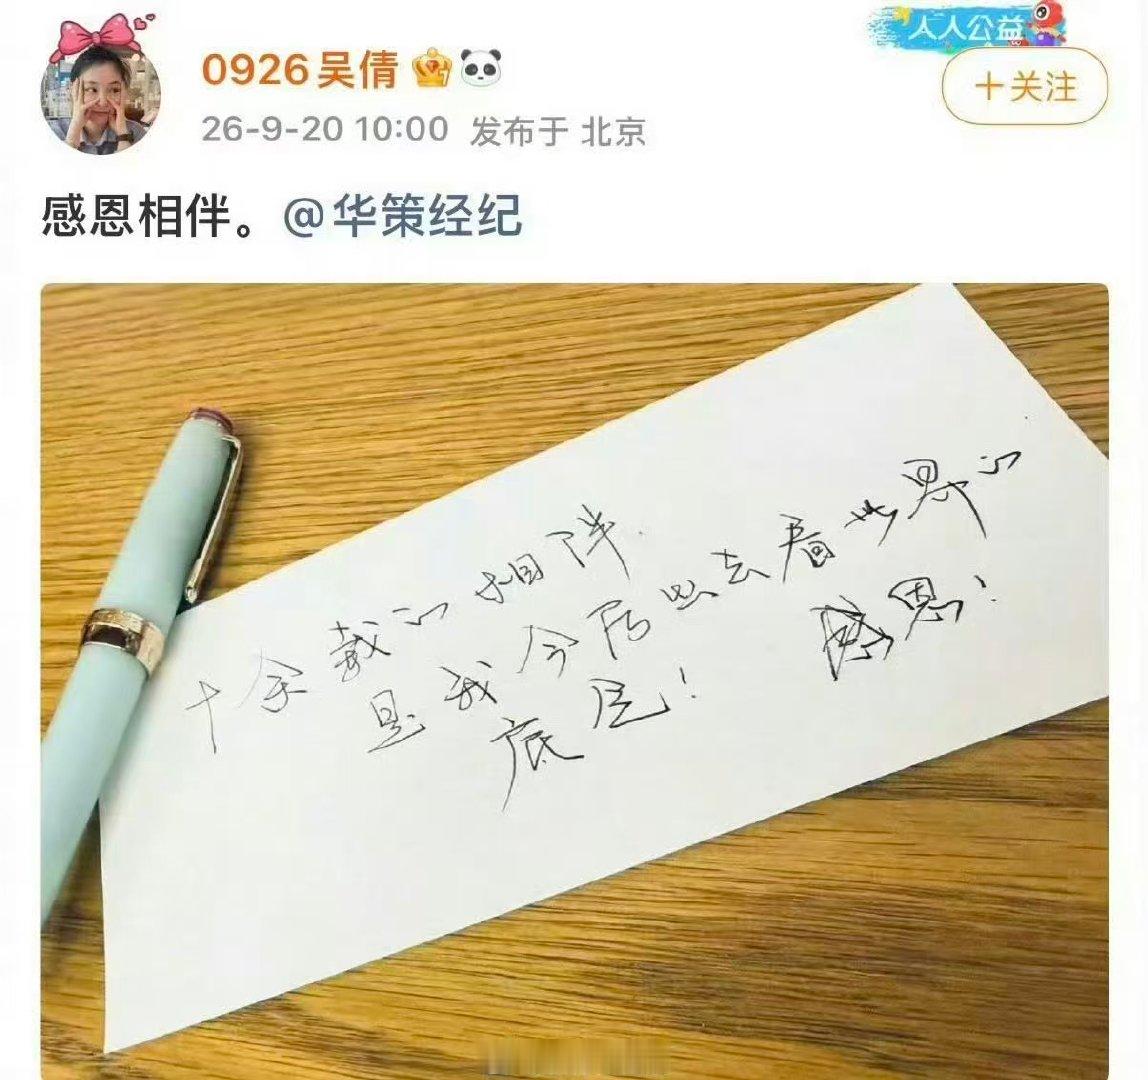 人人公益
0926吴倩
+关注
26-9-20 10:00 发布于 北京
感恩相伴。@华策经纪
十余载的相伴
是我今后出去看世界的
底气!
感恩!